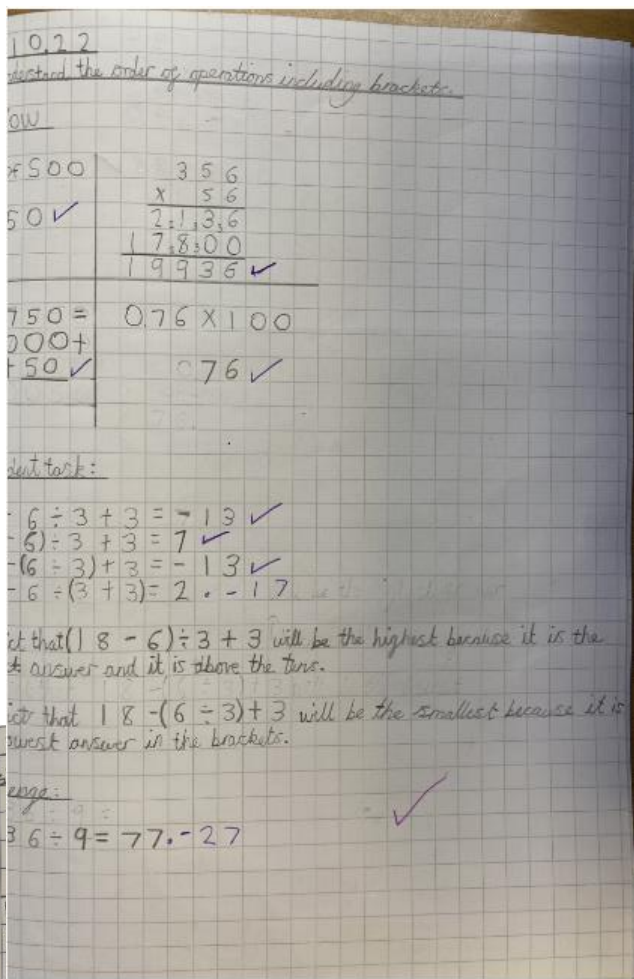 10.22
derstand the order of operations including brackets.
ow
of 500
356
x 56
2136
50 ✓
17800
19936 ✓
750 =
0.76 X 100
000 +
+ 50 ✓
76 ✓
dent task:
- 6 ÷ 3 + 3 = - 13 ✓
- 6) ÷ 3 + 3 = 7 ✓
- (6 ÷ 3) + 3 = - 13 ✓
- 6 ÷ (3 + 3) = 2 . - 17
ict that (18 - 6) ÷ 3 + 3 will be the highest because it is the
answer and it is above the tens.
ict that 18 - (6 ÷ 3) + 3 will be the smallest because it is
owest answer in the brackets.
enge:
36 ÷ 9 = 77 . - 27